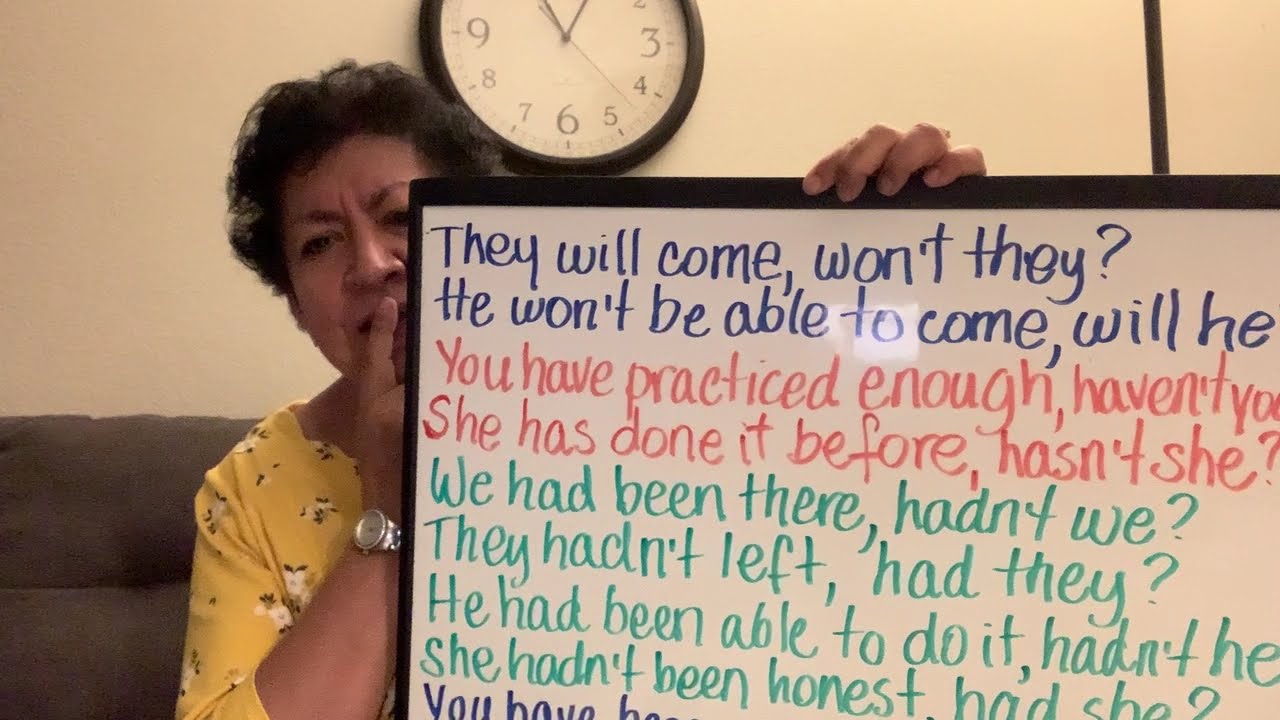 9
2
3
8
4
7
6
5
They will come, won't they?
He won't be able to come, will he
You have practiced enough, haven't
She has done it before, hasn't she?
We had been there, hadn't we?
They hadn't left, had they?
He had been able to do it, hadn't he
She hadn't been honest, had she?
You have